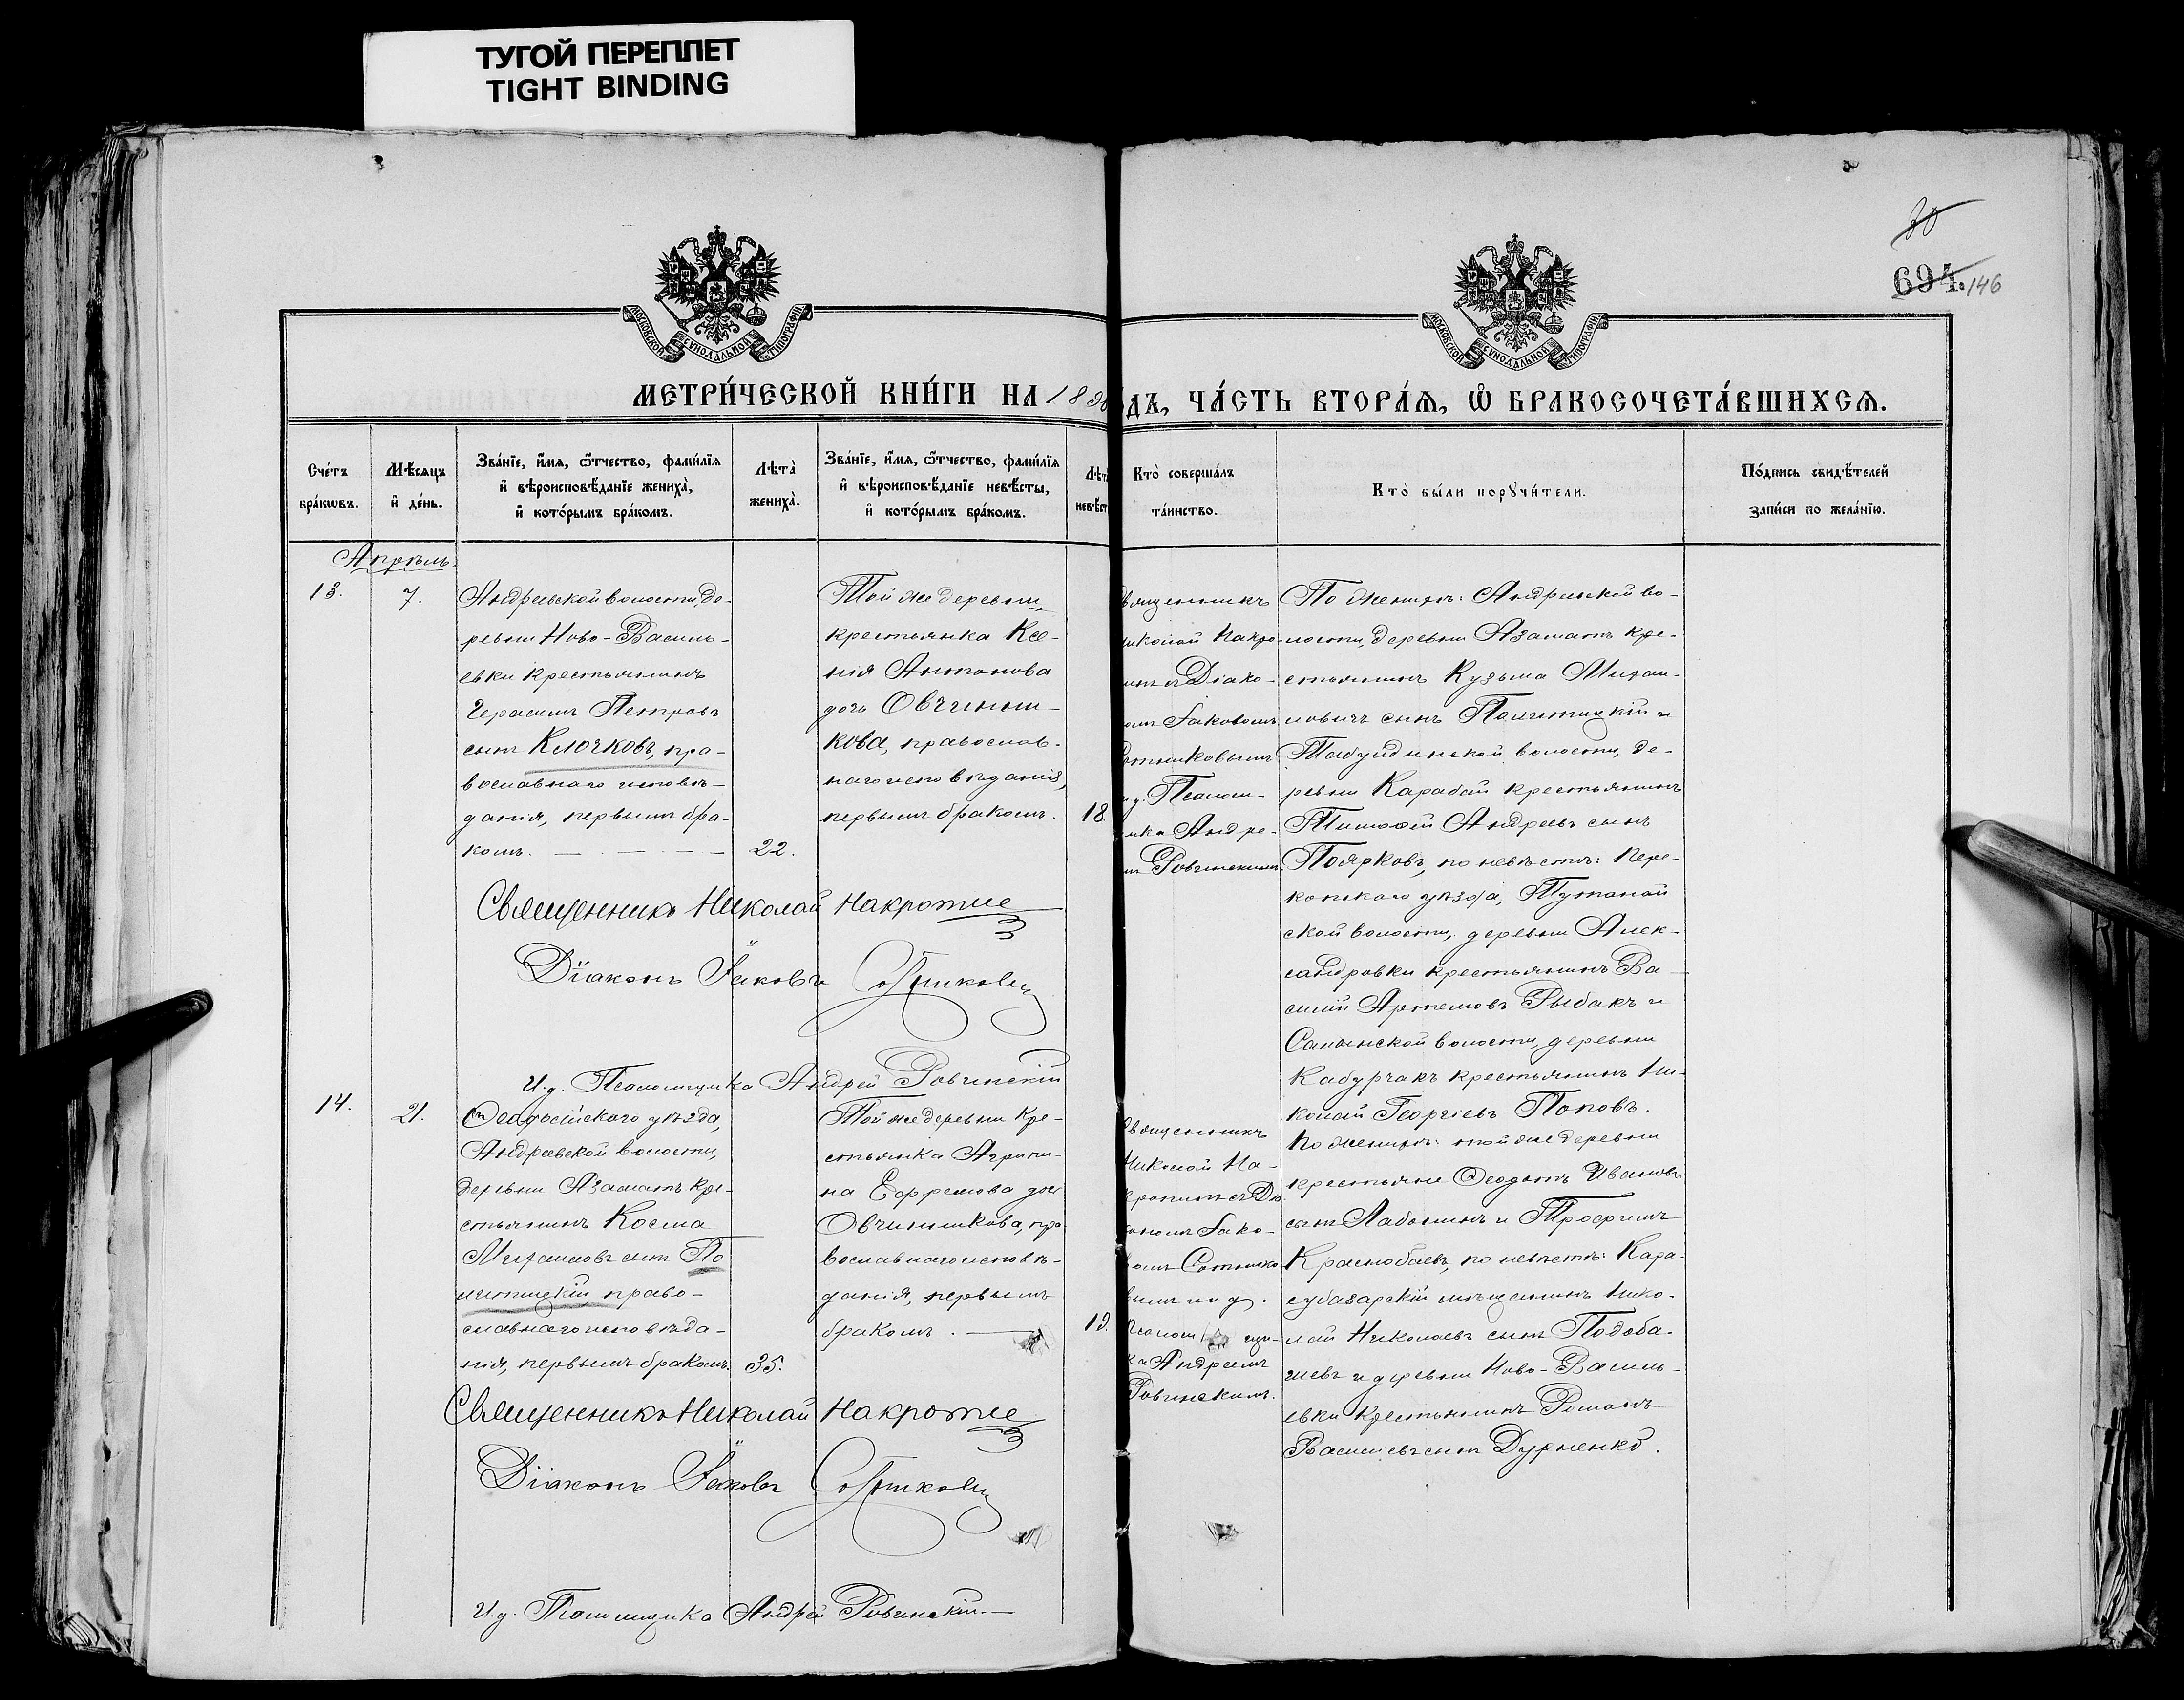 ТУГОЙ ПЕРЕПЛЕТ
TIGHT BINDING
694. 146
МОСКОВСКОЙ СѴНОДАЛЬНОЙ ТИПОГРАФІИ
МОСКОВСКОЙ СѴНОДАЛЬНОЙ ТИПОГРАФІИ
МЕТРИ́ЧЕСКОЙ КНИ́ГИ НА 189
ДЪ, ЧА́СТЬ ВТОРА́Я, Ѡ҆ БРАКОСОЧЕТА́ВШИХСЯ.
Сче́тъ
бра́кѡвъ.
Мѣ́сяцъ
и҆ де́нь.
Зва́нїе, и҆́мя, ѻ҆́тчество, фами́лїя
и҆ вѣроисповѣ́данїе жениха̀,
и҆ кото́рымъ бра́комъ.
Лѣта̀
жениха̀.
Зва́нїе, и҆́мя, ѻ҆́тчество, фами́лїя
и҆ вѣроисповѣ́данїе невѣ́сты,
и҆ кото́рымъ бра́комъ.
Лѣт
невѣст
Кто̀ соверша́лъ
та́инство.
Кто̀ бы́ли порꙋчи́тели.
По́дпись свидѣ́телей
за́писи по жела́нїю.
Апрѣль.
13.
7.
Андреевской волости, де-
ревни Ново-Василь-
евки крестьянинъ
Герасимъ Петровъ
сынъ Клочковъ, пра-
вославнаго исповѣ-
данія, первымъ бра-
комъ.
22.
Той же деревни
крестьянка Ксе-
нія Антонова
дочь Овчинни-
кова, православ-
наго исповѣданія,
первымъ бракомъ.
18.
вященникъ
иколай Накро-
Діако-
омъ Іаковомъ
отниковымъ
Псалом-
ика Андре-
Ровчинскимъ
По женихѣ: Андреевской во-
лости, деревни Азаматъ кре-
стьянинъ Кузьма
сынъ и
Табулдинской волости, де-
ревни Карабай крестьянинъ
Тимофей Андреевъ сынъ
Поярковъ, по невѣстѣ: Пере-
копскаго уѣзда,
ской волости, деревни Алек-
сандровки крестьянинъ Ва-
силій Артемовъ Рыбакъ и
волости, деревни
Кабурчакъ крестьянинъ Ни-
колай Георгіевъ Поповъ.
Священникъ Николай Накропие
Діаконъ Іаковъ Сотниковъ
И.д. Псаломщика Андрей Ровчинскій
14.
21.
Ѳеодосійскаго уѣзда,
Андреевской волости,
деревни Азаматъ кре-
стьянинъ Косма
сынъ По
право-
славнаго исповѣда-
нія, первымъ бракомъ.
35.
Той же деревни кре-
стьянка Агрипи-
на Ефремова дочь
Овчинникова, пра
вославнаго исповѣ-
данія, первымъ
бракомъ.
19.
вященникъ
Николай На-
съ Діа
кономъ Іако-
вомъ Сотнико
вымъ и и д.
Псаломщи-
ка Андреемъ
Ровчинскимъ.
По женихѣ: той же деревни
крестьяне Ѳеодотъ Ивановъ
сынъ и Трофимъ
Краснобаевъ, по невѣстѣ: Кара-
субазарскій мѣщанинъ Нико-
лай Николаевъ сынъ
и деревни Ново-Василь-
евки крестьянинъ Романъ
Васильевъ сынъ Дурненко.
Священникъ Николай Накропие
Діаконъ Іаковъ Сотниковъ
И.д. Псаломщика Андрей Ровчинскій.